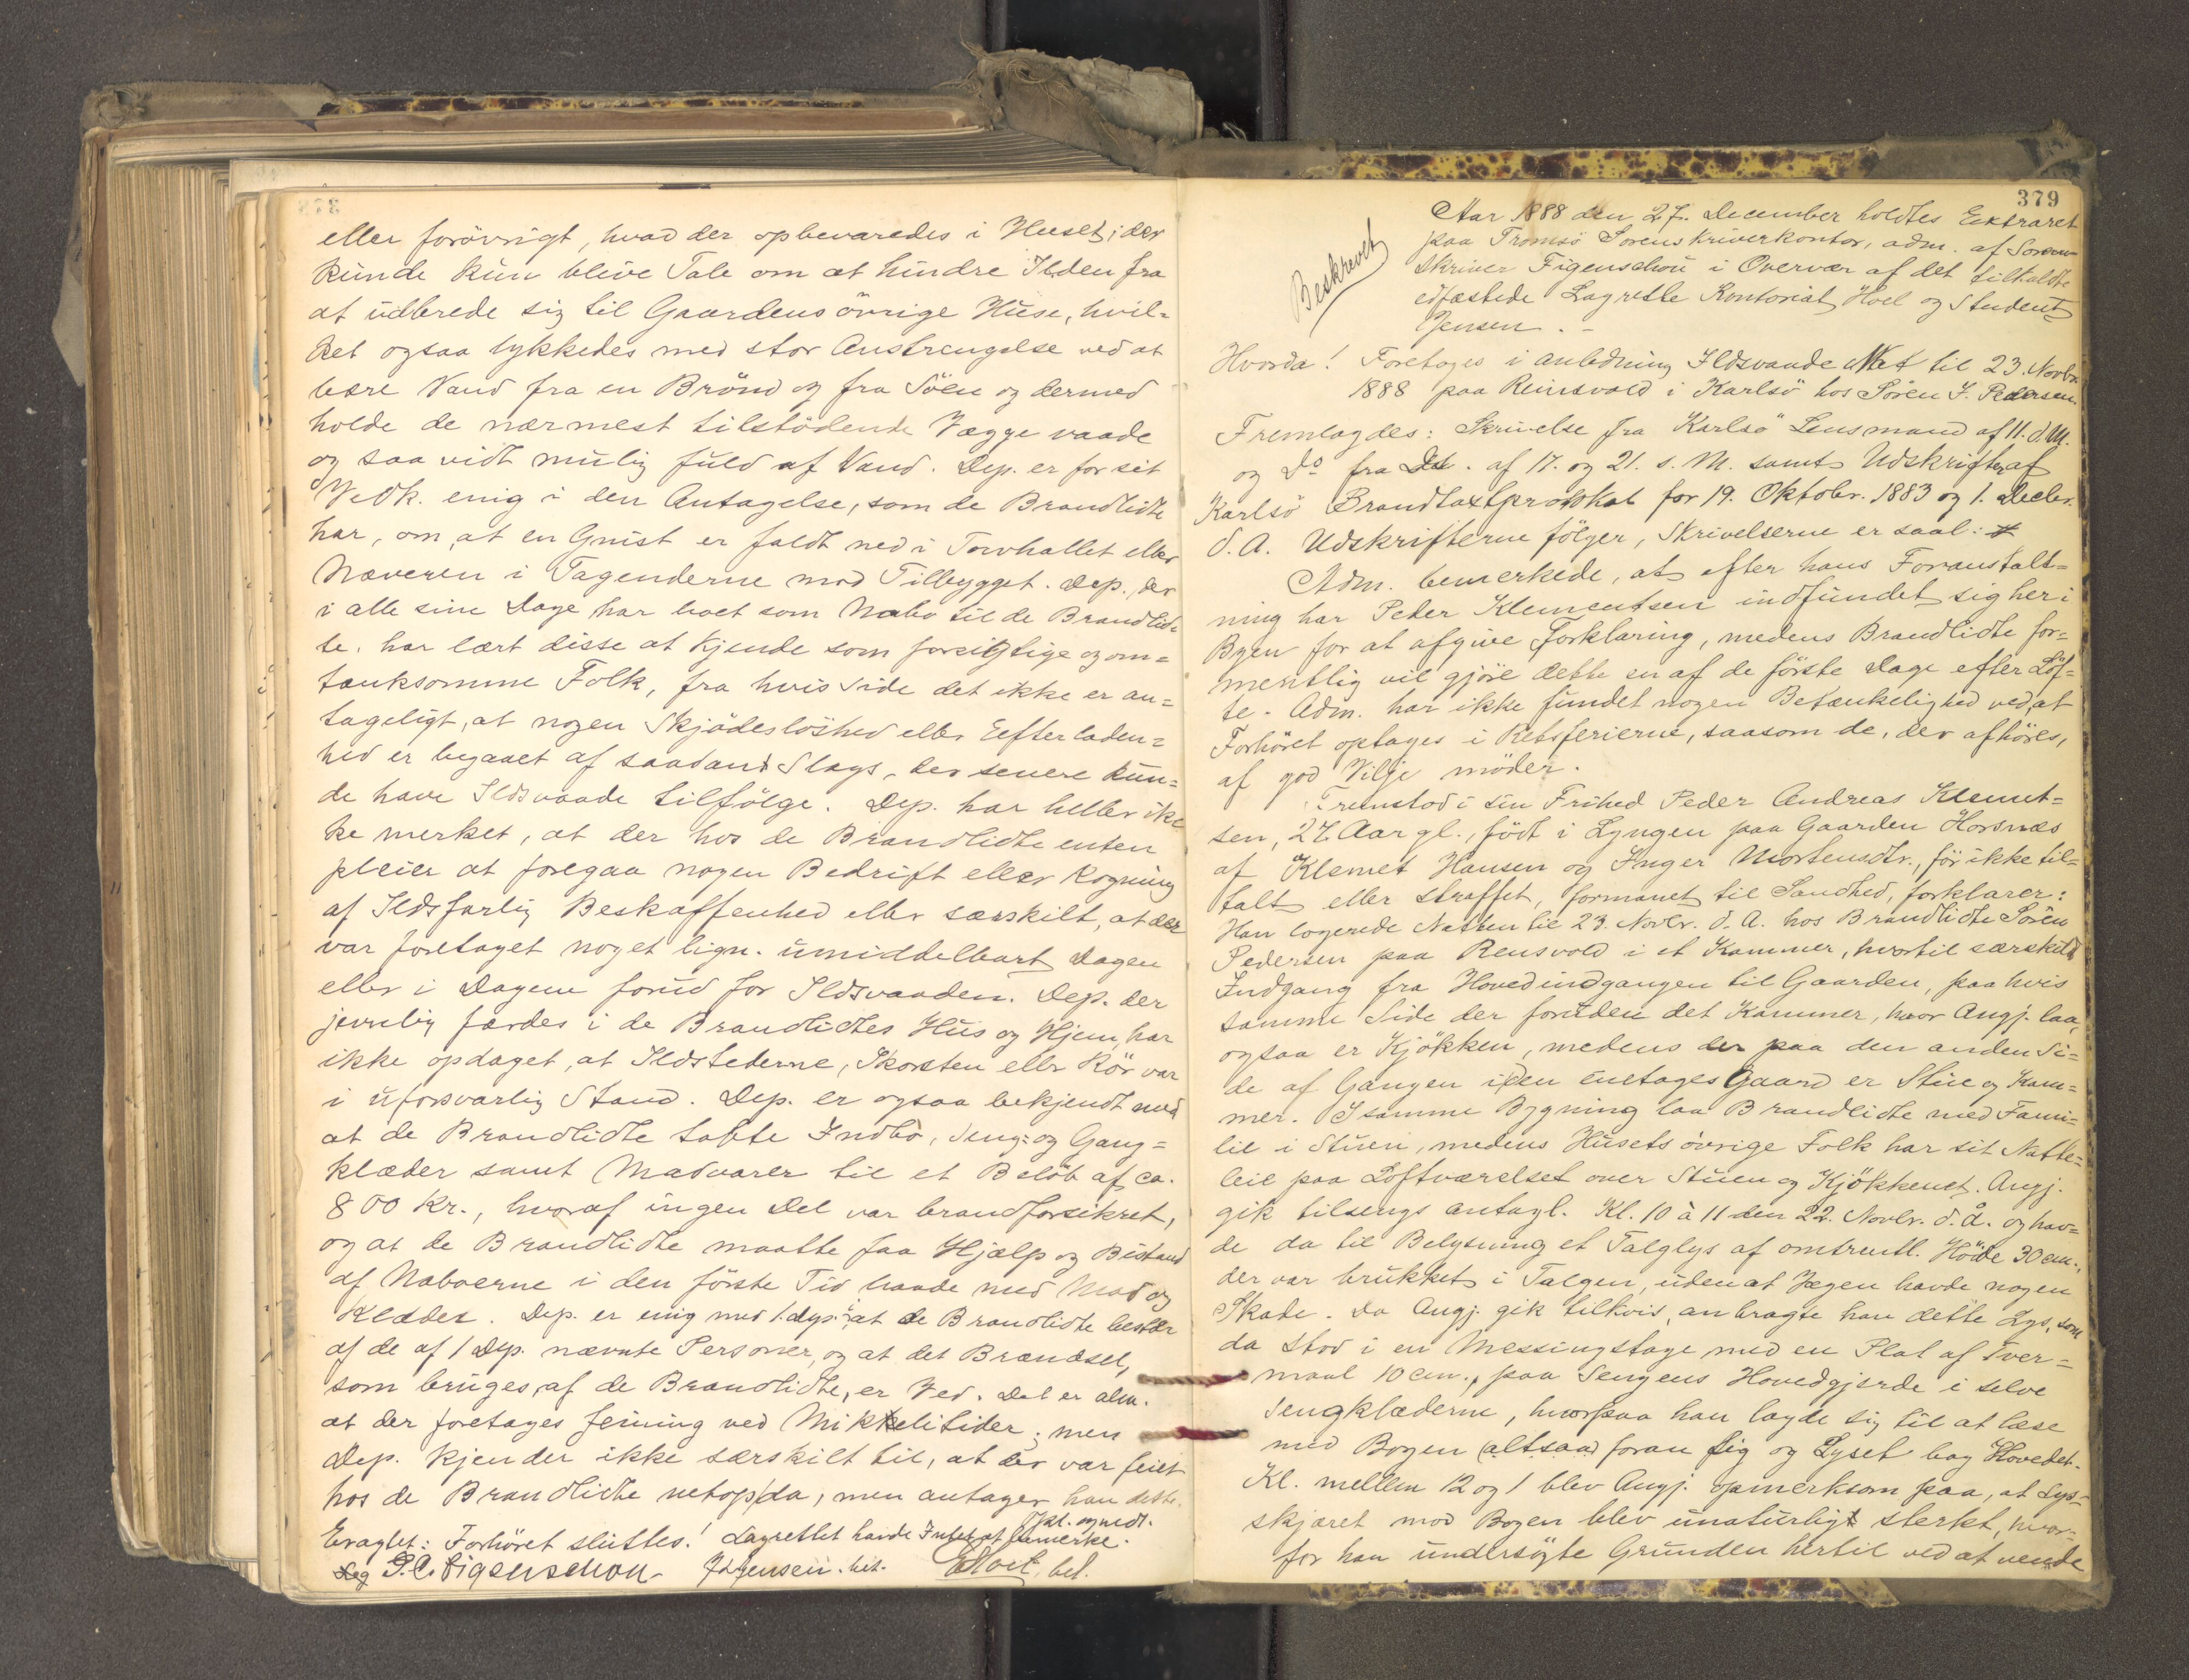 eller forövrigt, hvad der opbevaredes i Huset; der
kunde kun blive Tale om at hindre Ilden fra
at udbrede sig til Gaardens övrige Huse, hvil=
ket ogsaa lykkedes med stor Anstrengelse ved at
bære Vand fra en Brönd og fra Söen og dermed
holde de nærmest tilstödende Vægge vaade
og saa vidt mulig fuld af Vand. Dep. er for sit
Vedk. enig i den Antagelse, som de Brandlidte
har, om, at en Gnist er faldt ned i Torvhallet eller
Næveren i Tagenderne mod Tilbygget. Dep., der
i alle sine Dage har boet som Nabo til de Brandlid=
te, har lært disse at kjende som forsigtige og om=
tænksomme Folk, fra hvis Side det ikke er an=
tageligt, at nogen Skjödeslöshed eller Efterladen=
hed er begaaet af saadant Slags, der senere kun=
de have Ildsvaade tilfölge. Dep. har heller ik
ke merket, at der hos de Brandlidte enten
pleier at foregaa nogen Bedrift eller Kogning
af Ildsfarlig Beskaffenhed eller særskilt, at der
var foretaget noget lign. umiddelbart Dagen
eller i Dagene forud for Ildsvaaden. Dep. der
jevnlig færdes i de Brandlidtes Hus og Hjem, har
ikke opdaget, at Ildstederne, Skorsten eller Rör var
i uforsvarlig Stand. Dep. er ogsaa bekjendt med
at de Brandlidte tabte Indbo, Seng= og Gang=
klæder samt Madvarer til et Belöb af ca.
800 Kr., hvoraf ingen Del var brandforsikret,
og at de Brandlidte maatte faa Hjælp og Bistand
af Naboerne i den förste Tid baade med Mad og
Klæder. Dep. er enig med 1. dep. i, at de Brandlidte bestaar
af de af 1 Dep. nævnte Personer, og at det Brændsel,
som bruges, af de Brandlidte, er Ved. Det er alm.
at der foretages feining ved Mikkelitider; men
Dep. kjender ikke særskilt til, at der var feiet
hos de Brandlidte netop da, men antager han dette.
Opl. og vedt.
Eragtet: Forhöret sluttes! Lagrettet havde Intet at bemerke.
S. C. Figenschou J Jensen. bet. E Hoel, bet.
379
Beskrevet
Aar 1888 den 27. December holdtes Extraret
paa Tromsö Sorenskriverkontor, adm. af Soren=
skriver Figenschou i Overvær af det tilkaldte
edfæstede Lagrette Kontorist Hoel og Student
Jensen. -
Hvorda! Foretoges i anledning Ildsvaade Nat til 23. Novbr.
1888 paa Reinsvold i Karlsö hos Sören I. Pedersen.
Fremlagdes: Skrivelse fra Karlsö Lensmand af 11. d. M.
og Do fra Do. af 17. og 21. s. M. samt Udskrifter af
Karlsö Brandtaxtprotokol for 19. Oktobr. 1883 og 1. Decbr.
d. A. Udskrifterne fölger, Skrivelserne er saal:
Adm. bemerkede, at efter hans Foranstalt=
ning har Peder Klementsen indfundet sig her i
Byen for at afgive Forklaring, medens Brandlidte for=
mentlig vil gjöre dette en af de förste Dage efter Löf=
te. Adm. har ikke fundet nogen Betænkelighed ved, at
Forhöret optages i Retsferierne, saasom de, der afhöres,
af god Vilje möder.
Fremstod i sin Frihed Peder Andreas Klemet=
sen, 27 Aar gl., födt i Lyngen paa Gaarden Horsnæs
af Klemet Hansen og Inger Mortensdtr., för ikke til=
talt eller straffet, formanet til Sandhed, forklarer:
Han logerede Natten til 23. Novbr. d. A. hos Brandlidte Sören
Pedersen paa Rensvold i et Kammer, hvortil særskild
Indgang fra Hovedindgangen til Gaarden, paa hvis
samme Side der foruden det Kammer, hvor Angj. laa,
ogsaa er Kjökken, medens der paa den anden Si=
de af Gangen i den enetages Gaard er Stue og Kam=
mer. I samme Bygning laa Brandlidte med Fami=
lie i Stuen, medens Husets övrige Folk har sit Natte=
leie paa Loftværelset over Stuen og Kjökkenet. Angj.
gik tilsengs antagl. Kl. 10 à 11 den 22. Novbr. d. å. og hav=
de da til Belysning et Talglys af omtrentl. Höide 30 cm.,
der var brukket i Talgen, uden at Vægen havde nogen
Skade. Da Angj. gik tilkvis, anbragte han dette Lys, som
da stod i en Messingstage med en Plat af Tver=
maal 10 cm., paa Sengens Hovedgjerde i selve
Sengklæderne, hvorpaa han lagde sig til at læse
med Bogen (altsaa) foran sig og Lyset bag Hovedet.
Kl. mellem 12 og 1 blev Angj. opmerksom paa, at Lys=
skjæret mod Bogen blev unaturligt sterkt, hvor=
for han undersögte Grunden hertil ved at vende